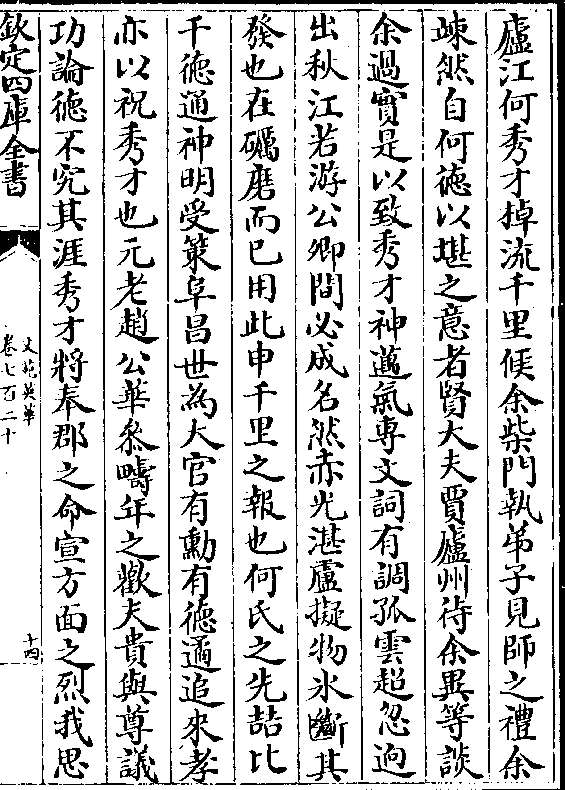 廬江何秀才掉流千里候余柴門執弟子見師之禮余
竦然自何徳以堪之意者賢大夫賈廬州待余異等談
余過實是以致秀才神邁氣専文詞有調孤雲超忽逈
出秋江若游公卿間必成名然赤光湛盧擬物氷斷其
發也在礪磨而已用此申千里之報也何氏之先喆比
干徳通神明受策阜昌世為大官有勳有徳遹追來孝
亦以祝秀才也元老趙公華忝疇年之歡夫貴與尊議
功論徳不究其涯秀才將奉郡之命宣方面之烈我思
欽定四庫全書
文苑英華
卷七百二十
十四